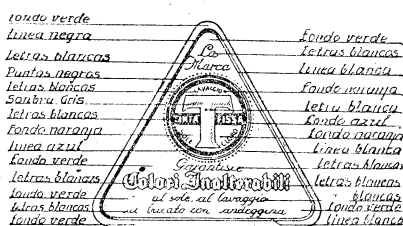 fondo verde
linea negra
Letras blancas
Puntos negros
letras blancas
Sombra Gris
letras blancas
Fondo naranja
linea azul
fondo verde
letras blancas
fondo verde
letras blancas
fondo verde
La
Marca
LAVAGGIO
TINTA FISSA
SOLE
Garantisce
Colori Inalterabili
al sole, al lavaggio
al bucato con andeggina
fondo verde
letras blancas
linea blanca
fondo naranja
letra blanca
fondo azul
fondo naranja
linea blanca
letras blancas
letras blancas
blancas
fondo verde
linea blanca